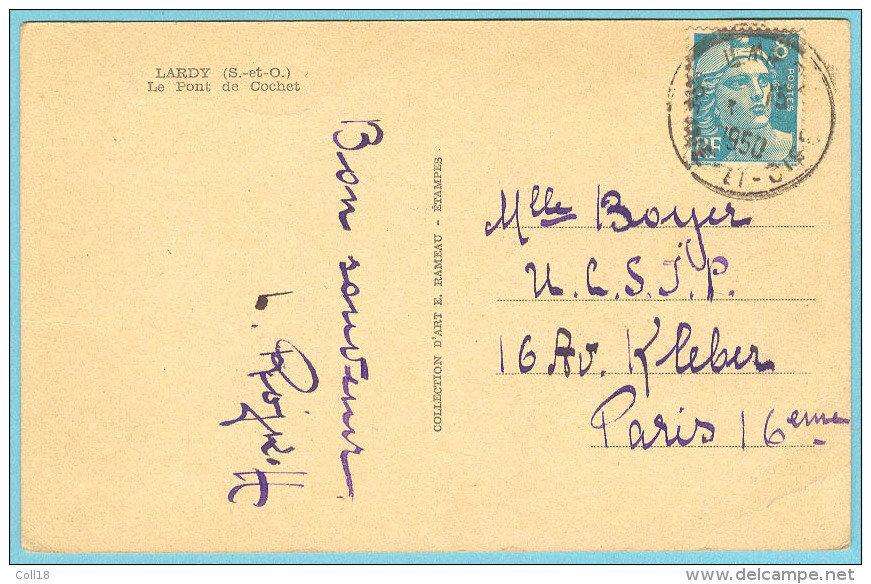 LARDY (S.-et-O.)
Le Pont de Cochet
Bon souvenir
COLLECTION D'ART E. RAMEAU - ÉTAMPES
8
POSTES
RF
1950
Mlle Boyer
U.L.S.J.P.
16 Av. Kleber
Paris 16eme
Coll18
www.delcampe.net